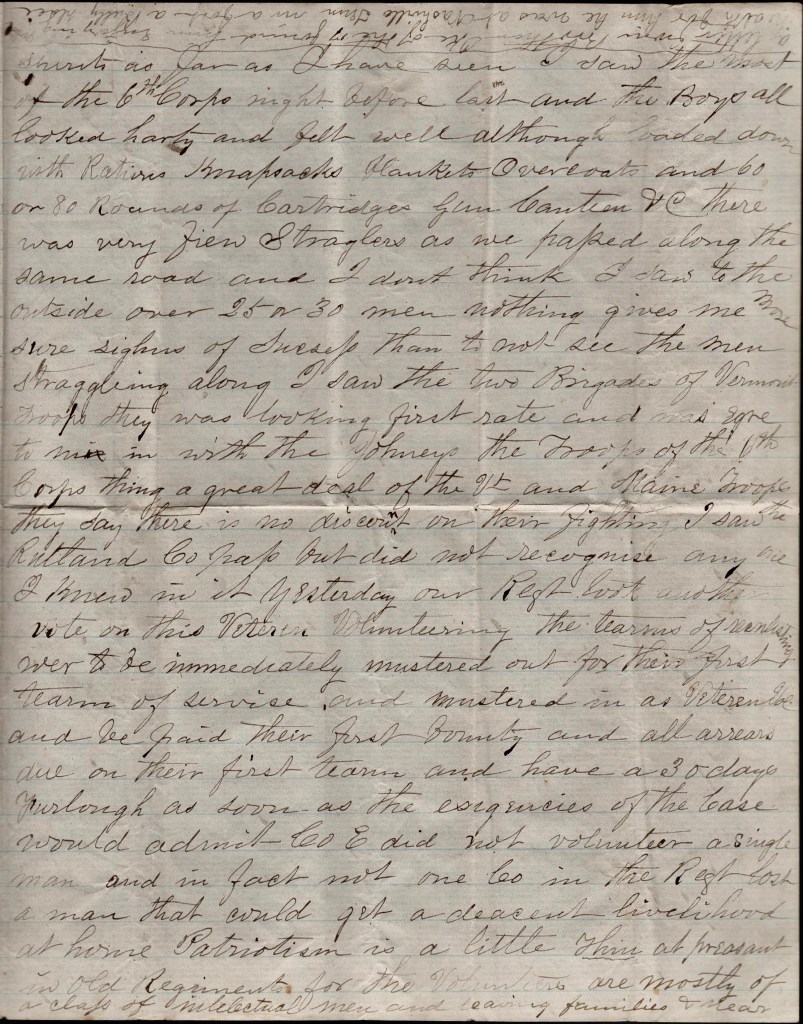 spirits as far as I have seen I saw the most
of the 6th Corps night before last and the Boys all
looked harty and felt well although loaded down
with Rations Knapsacks Blankets Overcoats and 60
or 80 Rounds of Cartridges Gun Canteen &C there
was very fiew Straglers as we passed along the
same road and I dont think I saw to the
outside over 25 or 30 men nothing gives me more
sure sighns of Sucsess than to not see the men
straggleing along I saw the two Brigades of Vermont
Troops they was looking first rate and was egre
to mix in with the Johneys the Troops of the 6th
Corps thing a great deal of the Vt and Maine Troops
they say there is no discount on their fighting I saw the
Rutland Co pass but did not recognise any one
I knew in it Yesterday our Regt took another
vote on this Veteren Volunteering the tearms of
wer to be immediately mustered out for their first
tearm of service and mustered in as Veteren Vol
and be paid their first bounty and all arrears
due on their first tearm and have a 30 days
Furlough as soon as the exigencies of the Case
would admit Co E did not volunteer a single
man and in fact not one Co in the Regt lost
a man that could get a deacent livelihood
at home Patriotism is a little Thin at preasant
in Old Regiments for the Volunteers are mostly of
a class of intelectual men and leaving families & near